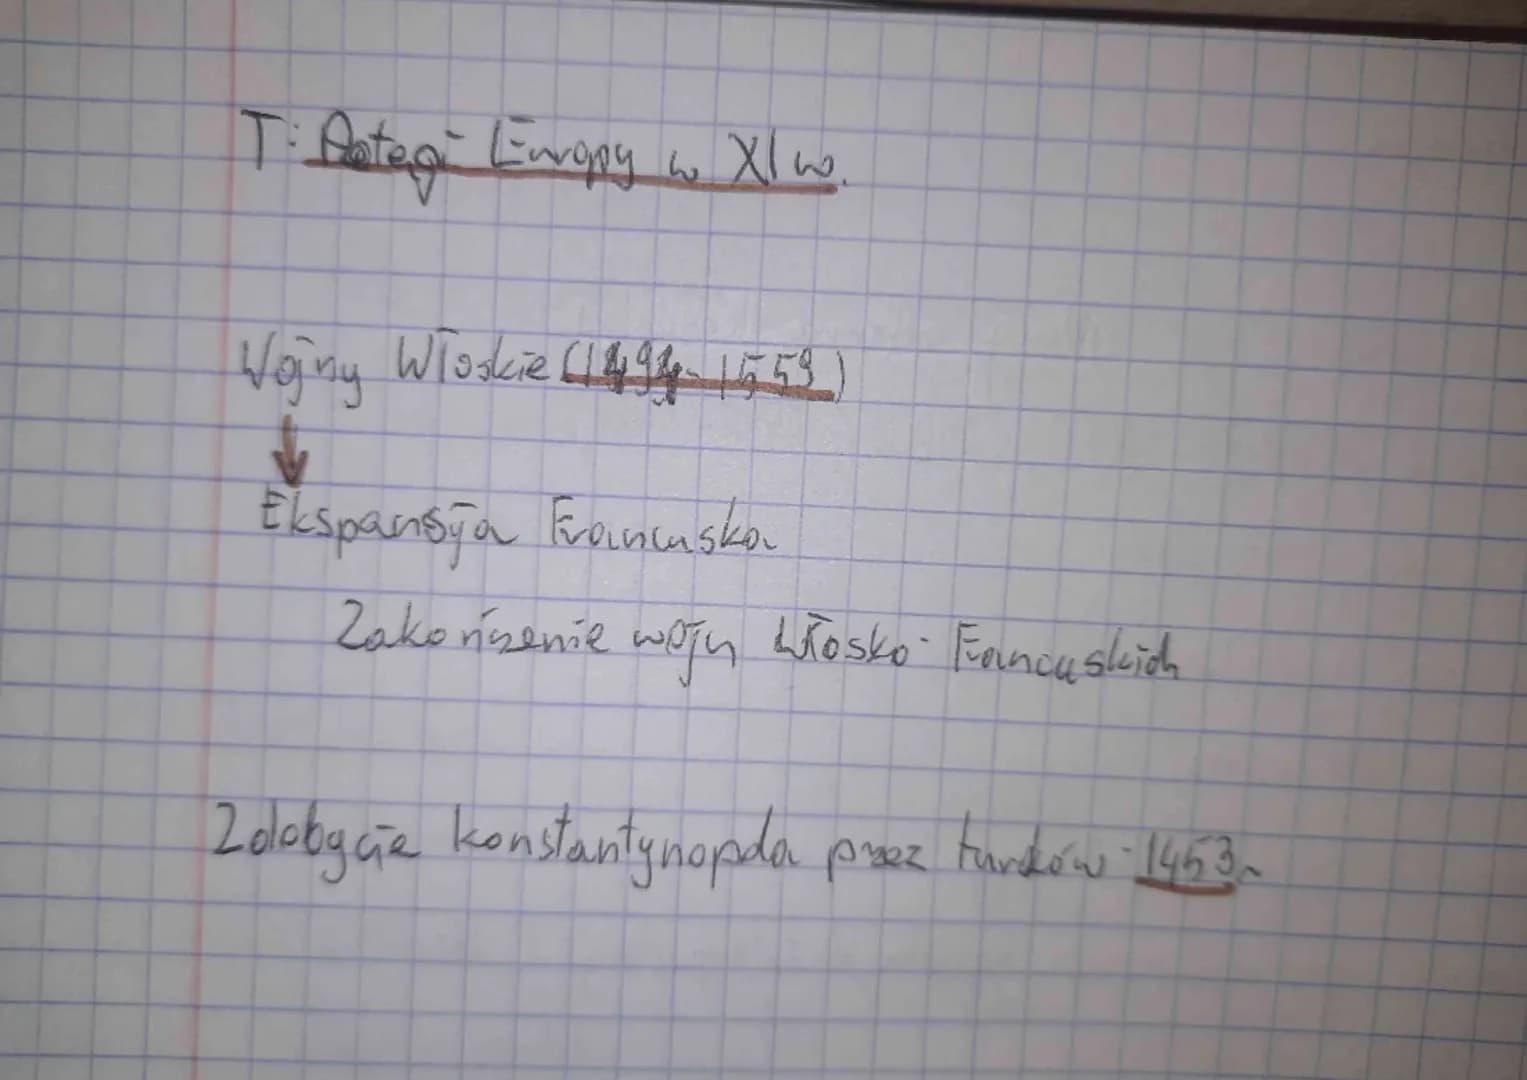 T: Potęgi Europy w XI w.
Wojny Włoskie (1494-1559)
Ekspansja Francuska
Zakończenie wojn Włosko-Francuskich
Zdobycie konstantynopola przez turków - 1453r